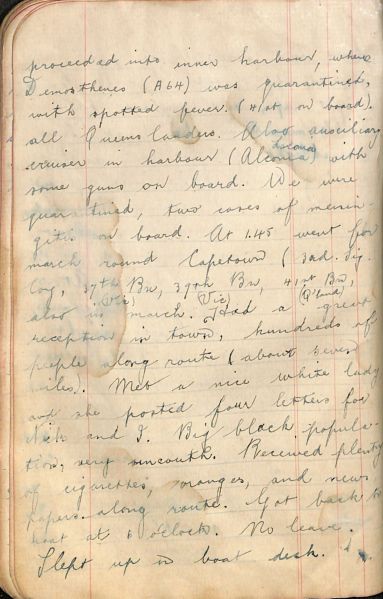 proceeded into inner harbour, where
Demosthenes (A64) was quarantined,
with spotted fever. (41st on board).
all Queenslanders. Also auxiliary
cruiser in harbour (Alconia) with
some guns on board. We were
quarantined, two cases of menin-
gitis on board. At 1.45 went for
march round Capetown (3rd. Sig.
Coy, 37th Bn, 39th Bn, 41st Bn,
(Vic) (Vic) (Q'land)
also in march. Had a great
reception in town, hundreds of
people along route (about seven
miles). Met a nice white lady
and she posted four letters for
Nick and I. Big black popula-
tion, very uncouth. Received plenty
of cigarettes, oranges, and news
papers along route. Got back to
boat at 6 o'clock. No leave.
Slept up on boat deck.